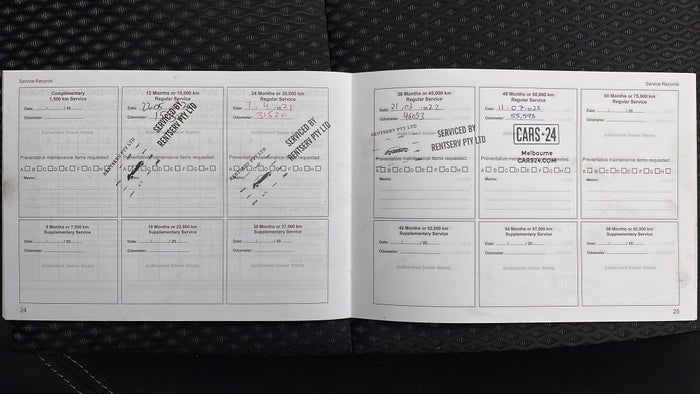 Service Records
Complimentary
1,500 km Service
Date: / / 20
Odometer:
Authorised Dealer Stamp
12 Months or 15,000 km
Regular Service
Date:
Odometer:
SERVICED BY
RENTSERV PTY LTD
RENTSERV PTY LTD
24 Months or 30,000 km
Regular Service
Date: 7 / 4 / 2021
Odometer: 31520
SERVICED BY
RENTSERV PTY LTD
RENTSERV PTY LTD
Preventative maintenance items requested:
A B C D E F G H
Memo:
Preventative maintenance items requested:
A B C D E F G H
Memo:
Preventative maintenance items requested:
A B C D E F G H
Memo:
6 Months or 7,500 km
Supplementary Service
Date: / / 20
Odometer:
Authorised Dealer Stamp
18 Months or 22,500 km
Supplementary Service
Date: / / 20
Odometer:
Authorised Dealer Stamp
30 Months or 37,500 km
Supplementary Service
Date: / / 20
Odometer:
Authorised Dealer Stamp
24
Service Records
36 Months or 45,000 km
Regular Service
Date: 21 / 03 / 2022
Odometer: 46093
RENTSERV PTY LTD
SERVICED BY
RENTSERV PTY LTD
48 Months or 60,000 km
Regular Service
Date: 11 / 07 / 2023
Odometer: 55,593
CARS24
Melbourne
CARS24.COM
60 Months or 75,000 km
Regular Service
Date: / / 20
Odometer:
Authorised Dealer Stamp
Preventative maintenance items requested:
A B C D E F G H
Memo:
A B C D E F G H
Memo:
Preventative maintenance items requested:
A B C D E F G H
Memo:
42 Months or 52,500 km
Supplementary Service
Date: / / 20
Odometer:
Authorised Dealer Stamp
54 Months or 67,500 km
Supplementary Service
Date: / / 20
Odometer:
Authorised Dealer Stamp
66 Months or 82,500 km
Supplementary Service
Date: / / 20
Odometer:
Authorised Dealer Stamp
25